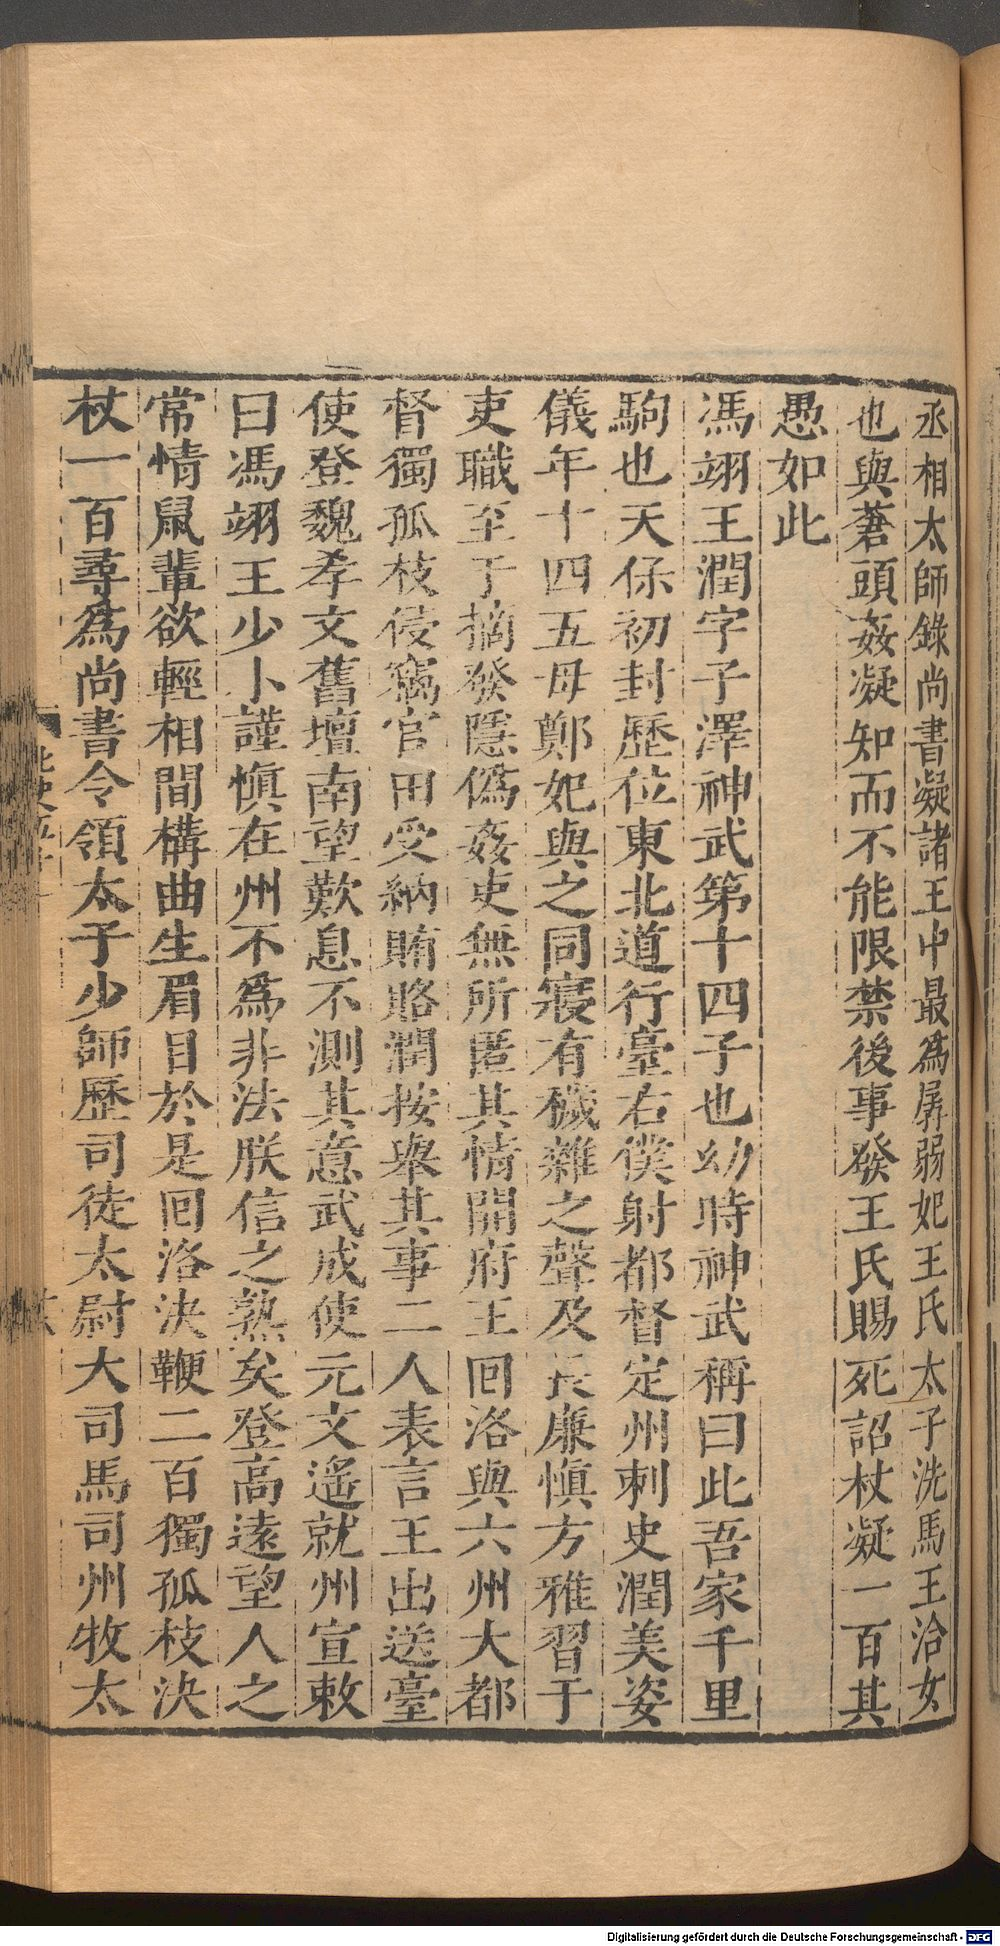 丞相太師錄尚書凝諸王中最爲孱弱妃王氏太子洗馬王洽女
也與蒼頭姦凝知而不能限禁後事發王氏賜死詔杖凝一百其
愚如此
馮翊王潤字子澤神武第十四子也幼時神武稱曰此吾家千里
駒也天保初封歷位東北道行臺右僕射都督定州刺史潤美姿
儀年十四五母鄭妃與之同寢有穢雜之聲及長廉愼方雅習于
吏職至于摘發隱僞姦吏無所匿其情開府王回洛與六州大都
督獨孤枝侵竊官田受納賄賂潤按舉其事二人表言王出送臺
使登魏孝文舊壇南望歎息不測其意武成使元文遙就州宣敕
曰馮翊王少小謹愼在州不爲非法朕信之熟矣登高遠望人之
常情鼠輩欲輕相間構曲生眉目於是回洛決鞭二百獨孤枝決
杖一百尋爲尚書令領太子少師歷司徒太尉大司馬司州牧太
Digitalisierung gefördert durch die Deutsche Forschungsgemeinschaft - DFG